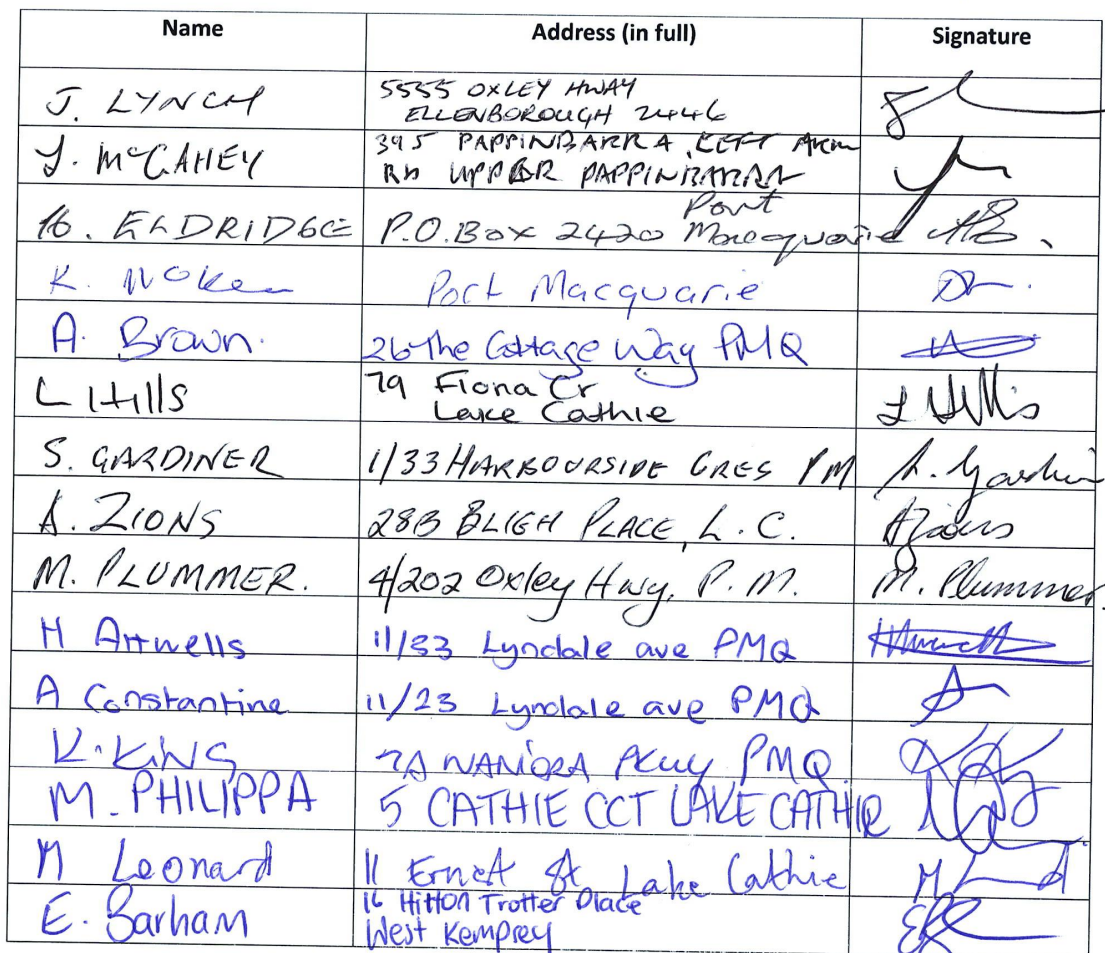 Name Address (in full) Signature
J. LYNCH 5555 OXLEY HWAY
ELLENBOROUGH 2446
J. McGAHEY 395 PAPPINBARRA LEFT ARM
RD UPPER PAPPINBARRA
ELDRIDGE P.O. Box 2420 Port
Macquarie
K. Port Macquarie
A. Brown. 26 The Cottage Way PMQ
L Hills 79 Fiona Cr L Hills
Lake Cathie
S. GARDINER 1/33 HARBOURSIDE CRES PM
A. ZIONS 28B BLIGH PLACE, L.C. AZions
M. PLUMMER. 4/202 Oxley Hwy, P.M. M. Plummer.
H Attwells 11/33 Lyndale ave PMQ
A Constantine 11/23 Lyndale ave PMQ
K. KING PKWY PMQ
M. PHILIPPA 5 CATHIE CCT LAKE CATHIE
M Leonard 11 Ernest St Lake Cathie
E. Barham 16 Hitton Trotter Place
West Kempsey